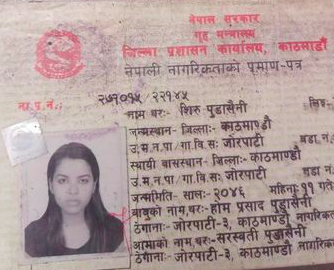 नेपाल सरकार
गृह मन्त्रालय
जिल्ला प्रशासन कार्यालय, काठमाडौं
नेपाली नागरिकताको प्रमाण-पत्र
ना.प्र.नं.:
२७१०१५/२२१४५
नाम थर:- शिरु पुडासैनी
जन्मस्थान- जिल्ला:- काठमाण्डौ
उ.म.न.पा/गा.वि.स: जोरपाटी वडा.न
स्थायी बासस्थान- जिल्ला:- काठमाण्डौ
उ.म.न.पा/गा.वि.स: जोरपाटी वडा न
जन्ममिति- साल:-२०४६ महिना:-११ ग
बाबुको नाम,थर:-होम प्रसाद पुडासैनी
ठेगाना:- जोरपाटी-३, काठमाण्डौ नागरिक
आमाको नाम,थर:-सरस्वती पुडासैनी
ठेगाना:- जोरपाटी-३, काठमाण्डौ नागरि